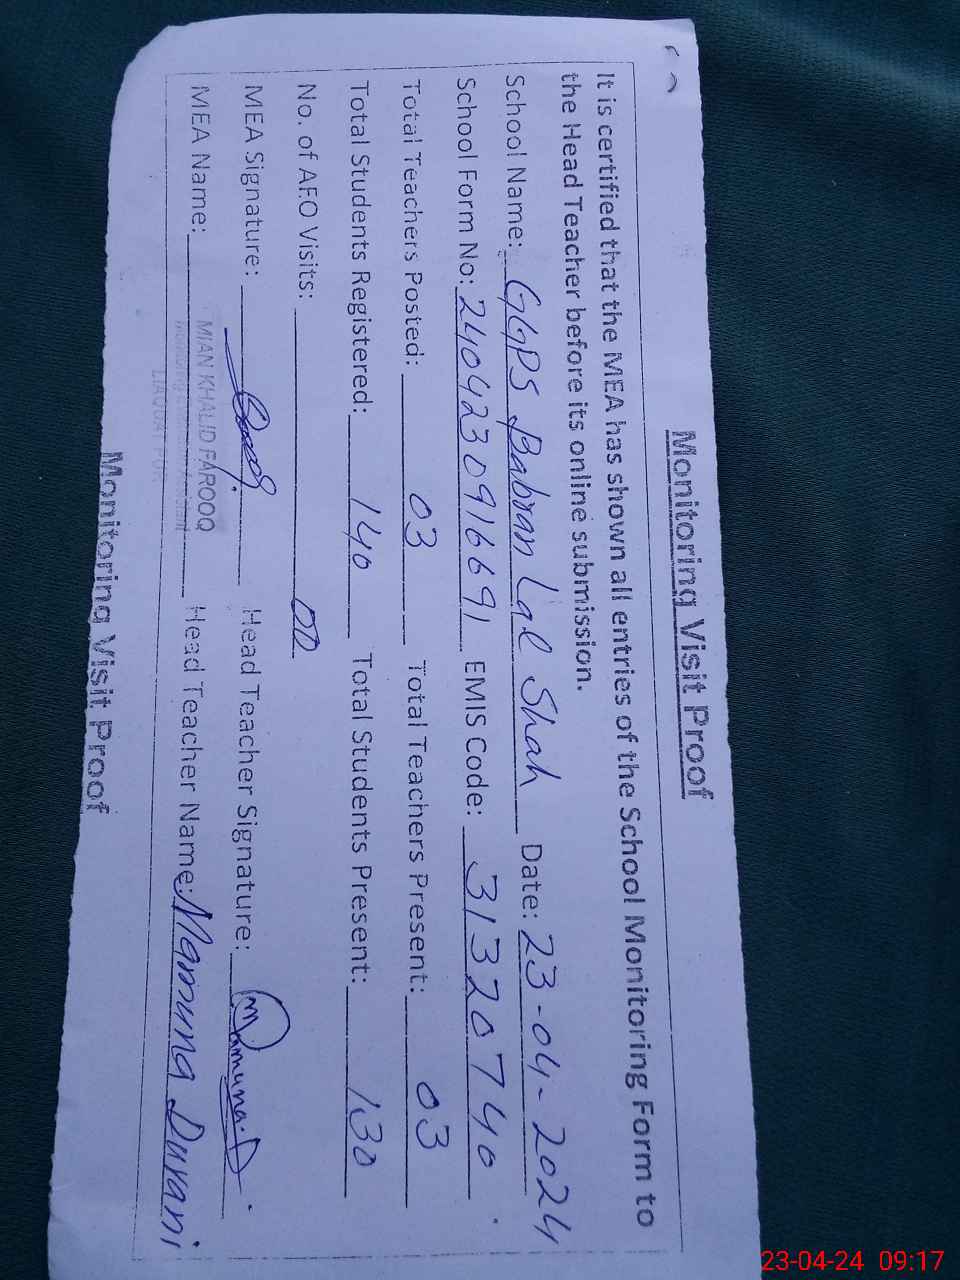 Monitoring Visit Proof
It is certified that the MEA has shown all entries of the School Monitoring Form to
the Head Teacher before its online submission.
School Name: GGPS Babran Lal Shah Date: 23-04-2024
School Form No: 2404230916691 EMIS Code: 31320740
Total Teachers Posted: 03 Total Teachers Present: 03
Total Students Registered: 140 Total Students Present: 130
No. of AEO Visits: 00
MEA Signature: Head Teacher Signature: Mamuna.D
MEA Name: MIAN KHALID FAROOQ Head Teacher Name: Mamuna Durani
Monitoring
LIAQUAT PUR
Monitoring Visit Proof
23-04-24 09:17